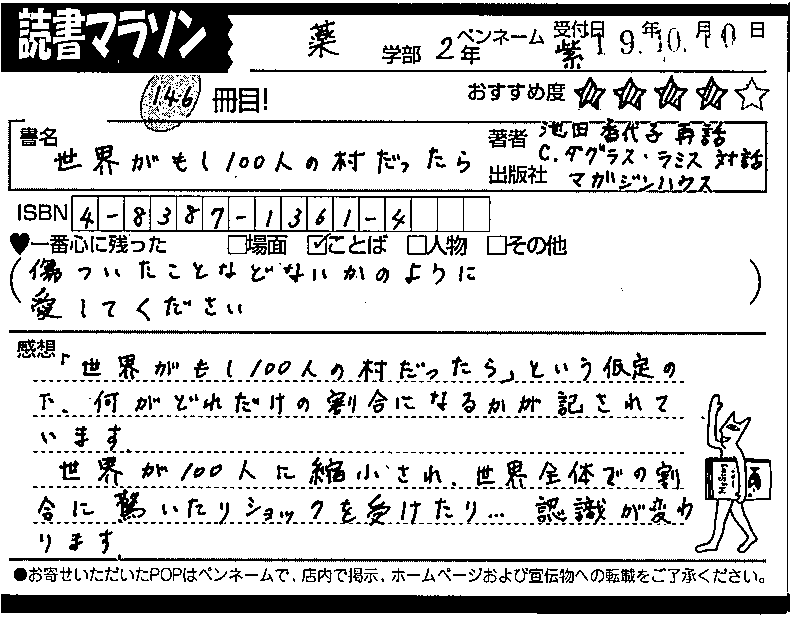 読書マラソン
薬 学部 2年 ペンネーム 紫 受付日 19.年10.月10日
146 冊目! おすすめ度 ★★★★☆
書名 世界がもし100人の村だったら
著者 池田香代子 再話
C.ダグラス・ラミス 対話
出版社 マガジンハウス
ISBN 4-8387-1361-4
♥一番心に残った □場面 ☑ことば □人物 □その他
(傷ついたことなどないかのように
愛してください)
感想 「世界がもし100人の村だったら」という仮定の
下、何がどれだけの割合になるかが記されて
います。
世界が100人に縮小され、世界全体での割
合に驚いたりショックを受けたり… 認識が変わ
ります。
●お寄せいただいたPOPはペンネームで、店内で掲示、ホームページおよび宣伝物への転載をご了承ください。